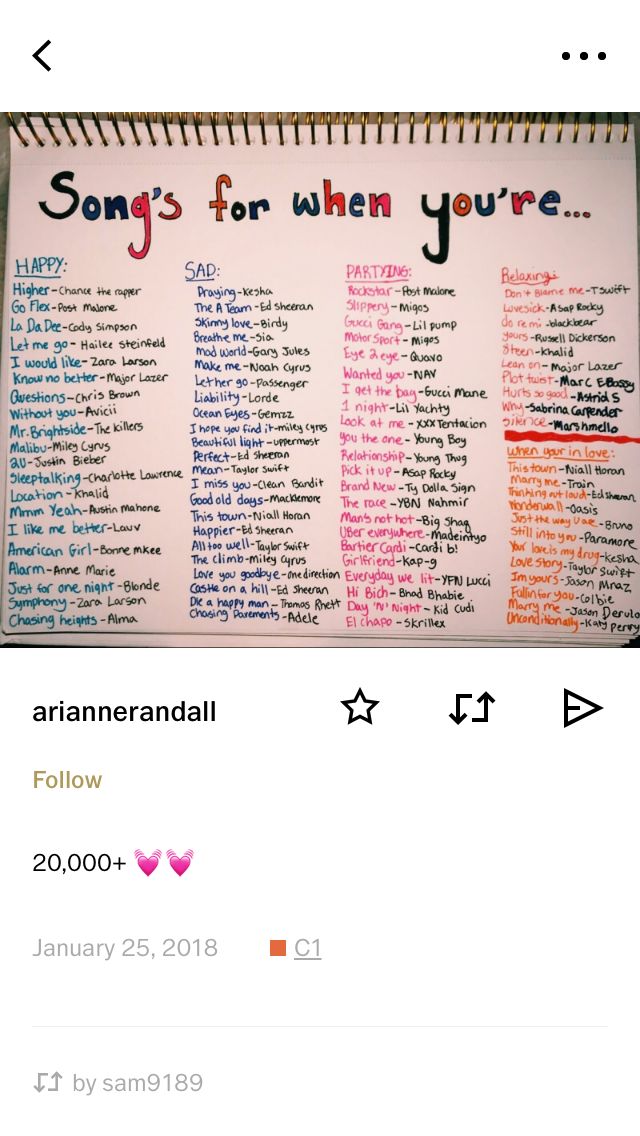 Song's for when you're...
HAPPY:
Higher-Chance the rapper
Go Flex-Post Malone
La Da Dee-Cody Simpson
Let me go-Hailee steinfeld
I would like-Zara Larson
Know no better-Major Lazer
Questions-Chris Brown
Without you-Avicii
Mr. Brightside-The killers
Malibu-Miley Cyrus
2U-Justin Bieber
Sleeptalking-Charlotte Lawrence
Location-Khalid
Mmm Yeah-Austin Mahone
I like me better-Lauv
American Girl-Bonne mkee
Alarm-Anne Marie
Just for one night-Blonde
Symphony-Zara Larson
Chasing heights-Alma
SAD:
Praying-kesha
The A Team-Ed sheeran
Skinny love-Birdy
Breathe me-Sia
Mad world-Gary Jules
Make me-Noah Cyrus
Let her go-Passenger
Liability-Lorde
Ocean Eyes-Gemzz
I hope you find it-miley cyrus
Beautiful light-uppermost
Perfect-Ed Sheeran
Mean-Taylor Swift
I miss you-Clean Bandit
Good old days-Macklemore
This town-Niall Horan
Happier-Ed Sheeran
All too well-Taylor Swift
The climb-Miley Cyrus
Love you goodbye-one direction
Castle on a hill-Ed Sheeran
Die a happy man-Thomas Rhett
Chasing Pavements-Adele
PARTYING:
Rockstar-Post Malone
Slippery-Migos
Gucci Gang-Lil pump
Motor Sport-Migos
Eye 2 eye-Quavo
Wanted you-NAV
I get the bag-Gucci Mane
1 night-Lil Yachty
Look at me-XXXTentacion
You the one-Young Boy
Relationship-Young Thug
Pick it up-Asap Rocky
Brand New-Ty Dolla Sign
The race-YBN Nahmir
Man's not hot-Big Shaq
Uber everywhere-Madeintyo
Bartier Cardi-Cardi b!
Girlfriend-Kap-g
Everyday we lit-YFN Lucci
Hi Bich-Bhad Bhabie
Day 'N' Night-Kid Cudi
El chapo-Skrillex
Relaxing:
Don't Blame me-TSwift
Lovesick-Asap Rocky
do re mi-blackbear
yours-Russell Dickerson
8teen-khalid
Lean on-Major Lazer
Plot twist-Marc E. Bassy
Hurts so good-Astrid S
Why-Sabrina Carpenter
Silence-Marshmello
When your in love:
This town-Niall Horan
Marry me-Train
Thinking out loud-Ed sheeran
Wonderwall-Oasis
Just the way U are-Bruno
Still into you-Paramore
Your love is my drug-kesha
Love Story-Taylor Swift
Im yours-Jason Mraz
Fallin for you-Colbie
Marry me-Jason Derulo
Unconditionally-Katy perry
ariannerandall
Follow
20,000+ 💓💓
January 25, 2018 C1
by sam9189